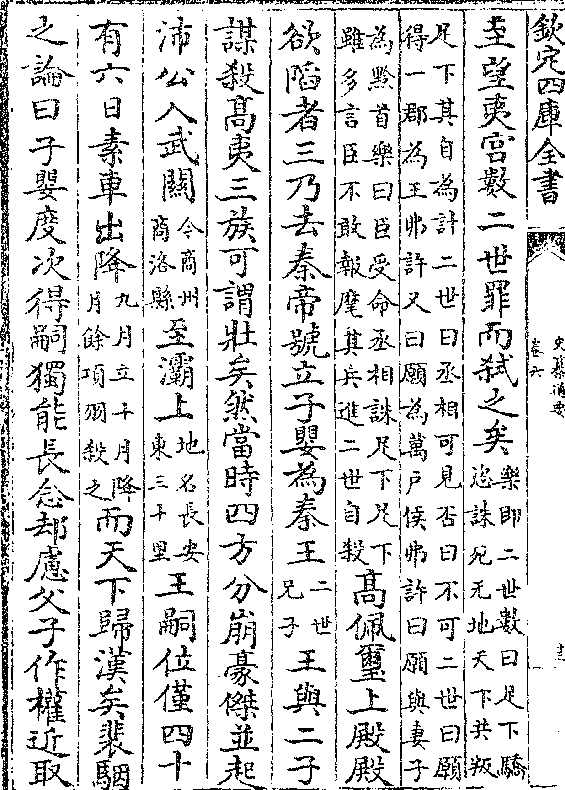 欽定四庫全書
史纂通要
卷六
十三
至望夷宫數二世罪而弑之矣樂即二世數曰足下驕
恣誅死无地天下共叛
足下其自為計二世曰丞相可見否曰不可二世曰願
得一郡為王弗許又曰願為萬户侯弗許曰願與妻子
為黔首樂曰臣受命丞相誅足下足下
雖多言臣不敢報麾其兵進二世自殺高佩璽上殿殿
欲陷者三乃去秦帝號立子嬰為秦王二世
兄子王與二子
謀殺高夷三族可謂壯矣然當時四方分崩豪傑並起
沛公入武關今商州
商洛縣至灞上地名長安
東三十里王嗣位僅四十
有六日素車出降九月立十月降
月餘項羽殺之而天下歸漢矣裴駰
之論曰子嬰度次得嗣獨能長念却慮父子作權近取